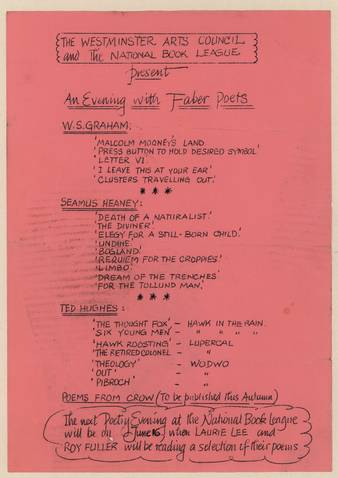 THE WESTMINSTER ARTS COUNCIL
and the NATIONAL BOOK LEAGUE
present
An Evening with Faber Poets
W.S.GRAHAM:
'MALCOLM MOONEY'S LAND
'PRESS BUTTON TO HOLD DESIRED SYMBOL'
'LETTER VI.'
'I LEAVE THIS AT YOUR EAR'
'CLUSTERS TRAVELLING OUT.'
* * *
SEAMUS HEANEY:
'DEATH OF A NATURALIST.'
'THE DIVINER'
'ELEGY FOR A STILL-BORN CHILD.'
'UNDINE.'
'BOGLAND.'
'REQUIEM FOR THE CROPPIES.'
'LIMBO.'
'DREAM OF THE TRENCHES'
'FOR THE TOLLUND MAN.'
* * *
TED HUGHES:
'THE THOUGHT FOX' - HAWK IN THE RAIN.
'SIX YOUNG MEN' - " " " "
'HAWK ROOSTING' - LUPERCAL
'THE RETIRED COLONEL - "
'THEOLOGY' - WODWO
'OUT' - "
'PIBROCH' - "
POEMS FROM CROW (To be published this Autumn)
The next Poetry Evening at the National Book League
will be on June 16 when LAURIE LEE and
ROY FULLER will be reading a selection of their poems